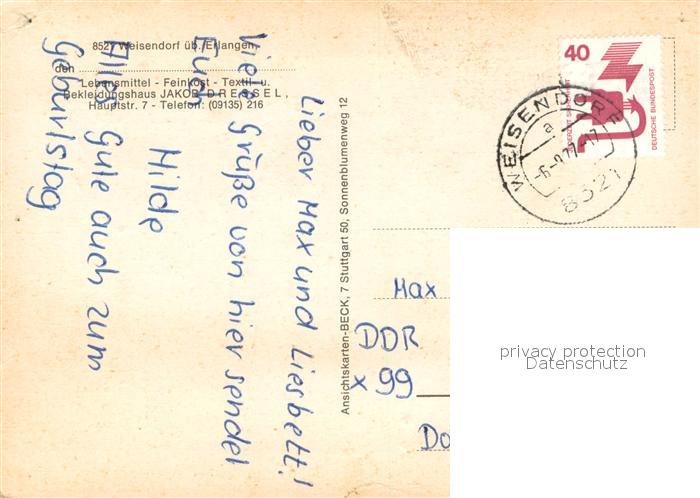 8521 Weisendorf üb. Erlangen,
den
Lebensmittel - Feinkost - Textil- u.
Bekleidungshaus JAKOB DRESSEL,
Hauptstr. 7 - Telefon: (09135) 216
Lieber Max und Liesbett!
Viele Grüße von hier sendet
Euch
Hilde
Alles Gute auch zum
Geburtstag
Ansichtskarten-BECK, 7 Stuttgart 50, Sonnenblumenweg 12
40
JEDERZEIT SICHERHEIT
DEUTSCHE BUNDESPOST
WEISENDORF
a
8521
Max
DDR
x 99
Do
privacy protection
Datenschutz